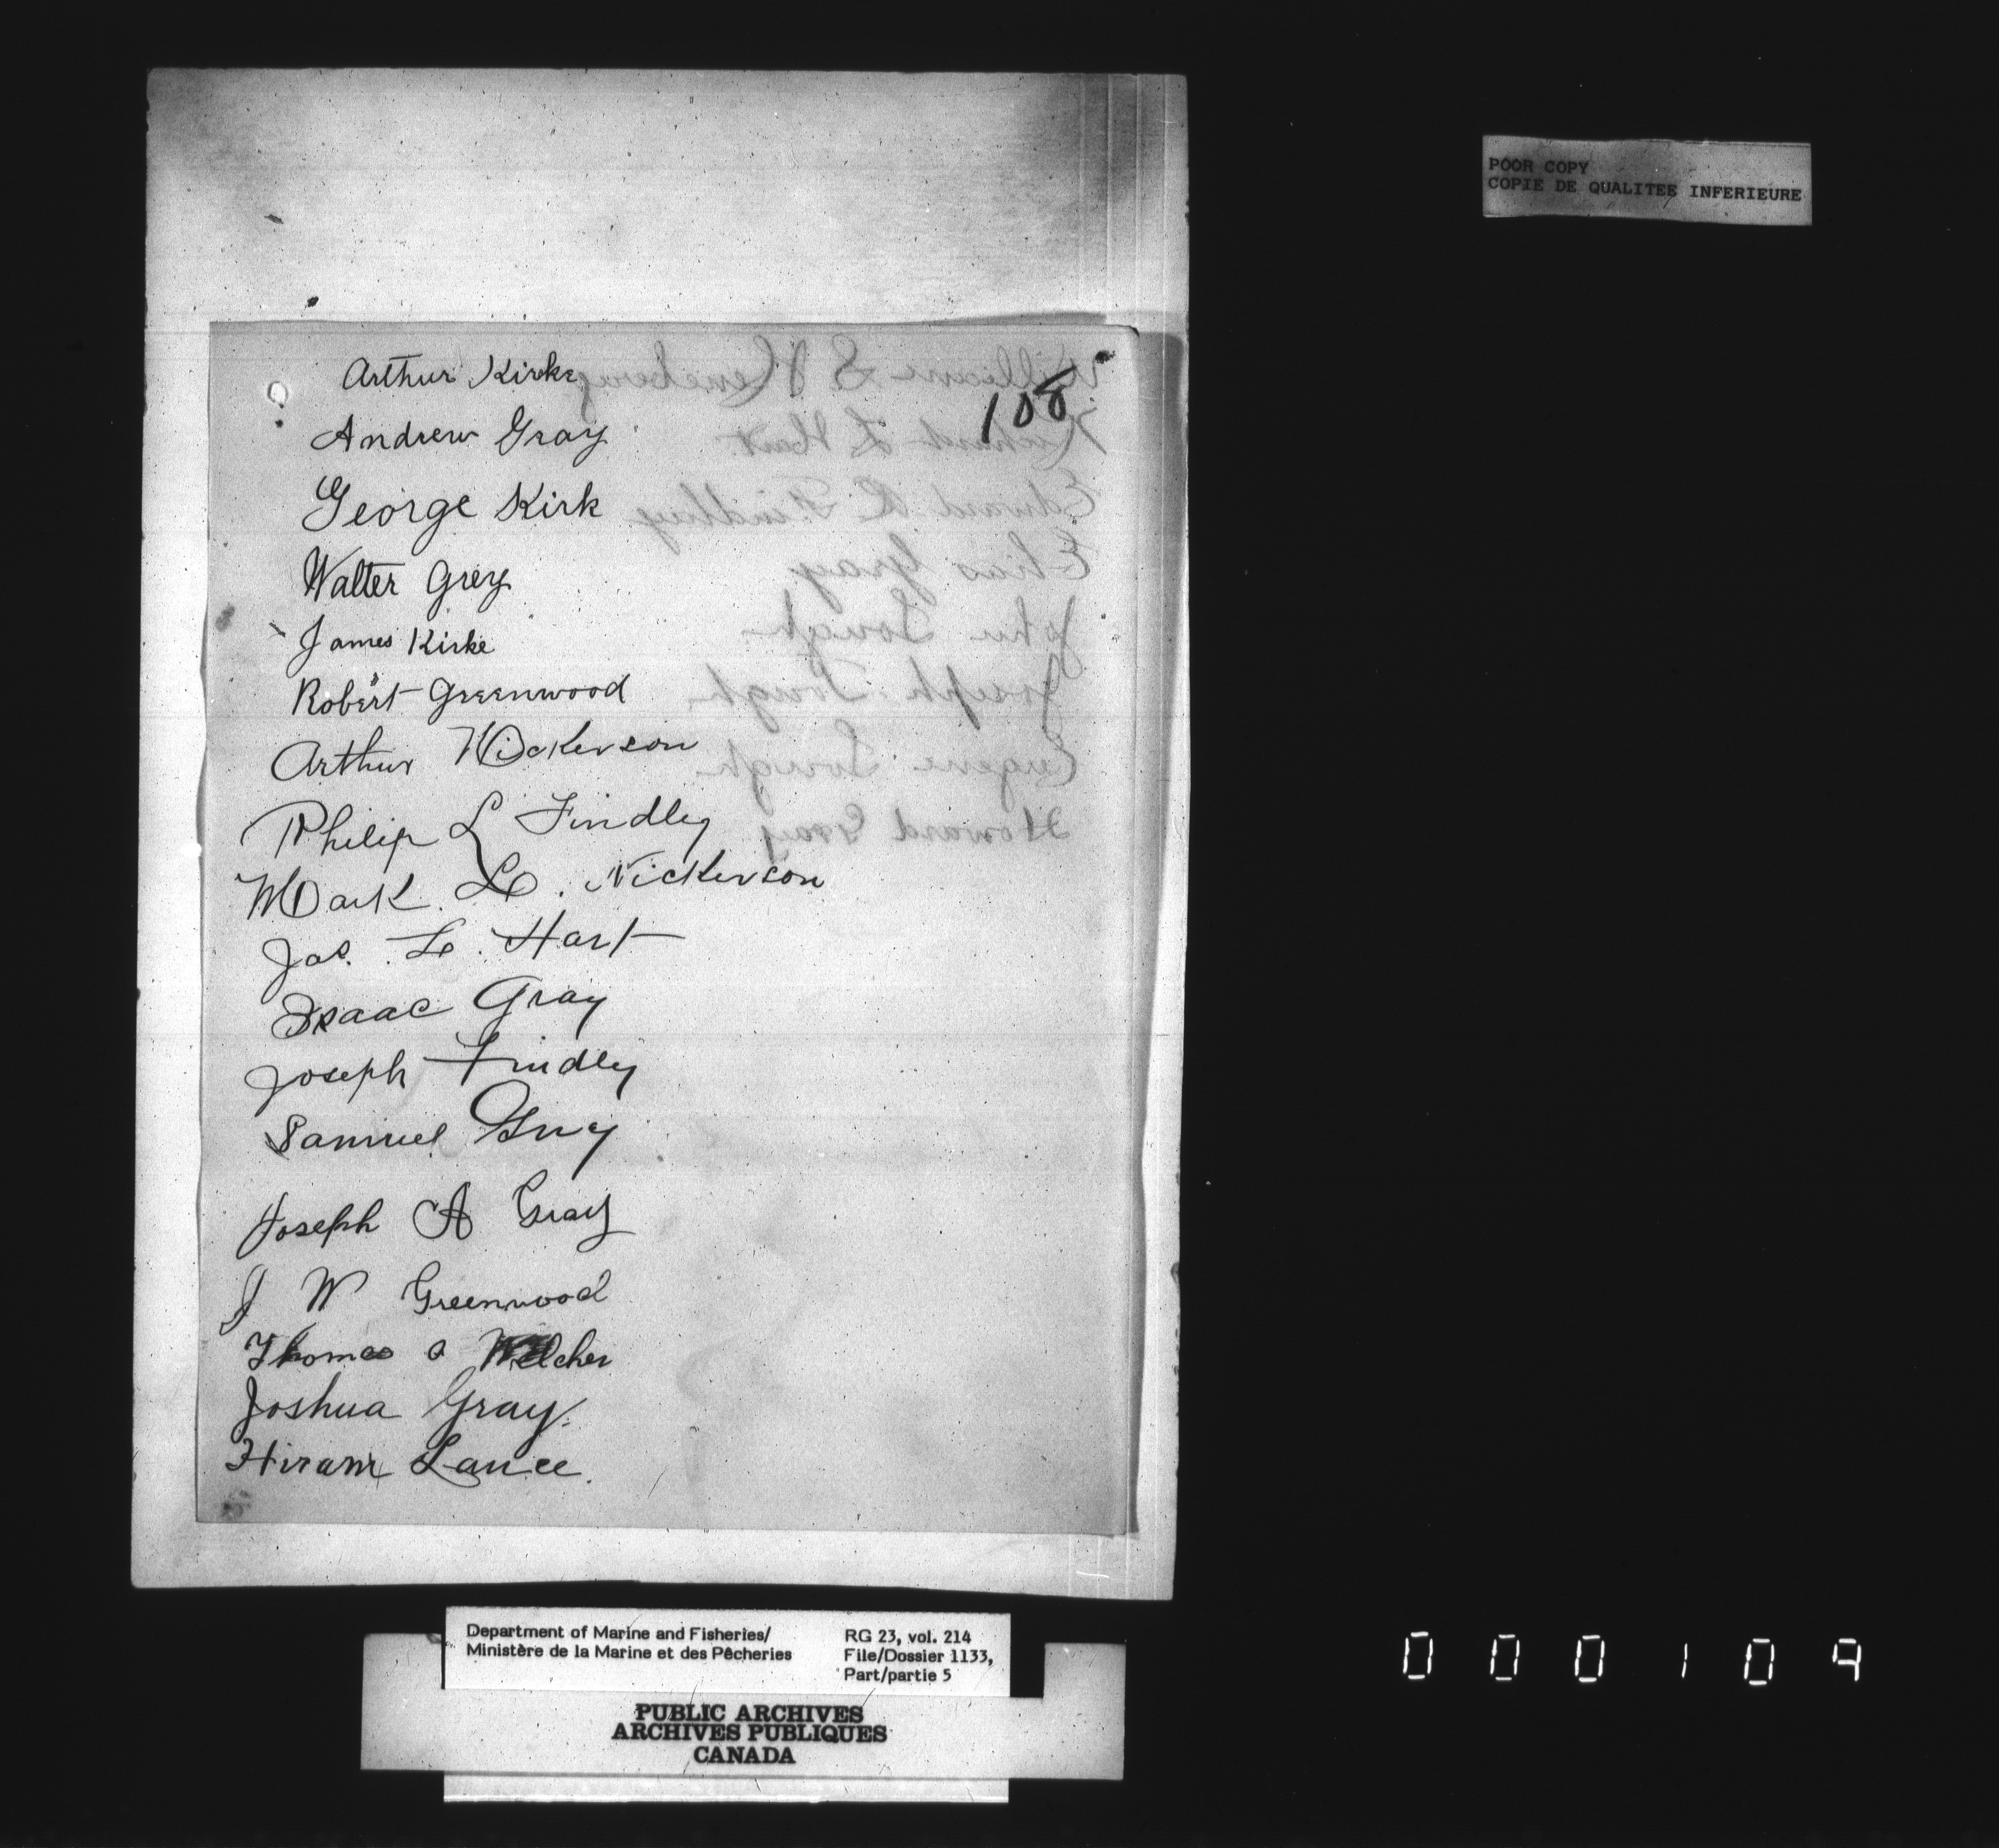 POOR COPY
COPIE DE QUALITEE INFERIEURE
108
Arthur Kirke
Andrew Gray
George Kirk
Walter Grey
James Kirke
Robert Greenwood
Arthur Nickerson
Philip L Findley
Mark. L. Nickerson
Jas. L. Hart
Isaac Gray
Joseph Findley
Samuel Guy
Joseph A Gray
J W Greenwood
Thomas a Welcher
Joshua Gray.
Hiram Lance.
Richard L Hart
Edward R Findley
Elias Gray
John Gough
Joseph Gough
Eugene Gough
Howard Gray
Department of Marine and Fisheries/
Ministère de la Marine et des Pêcheries
RG 23, vol. 214
File/Dossier 1133,
Part/partie 5
PUBLIC ARCHIVES
ARCHIVES PUBLIQUES
CANADA
000109